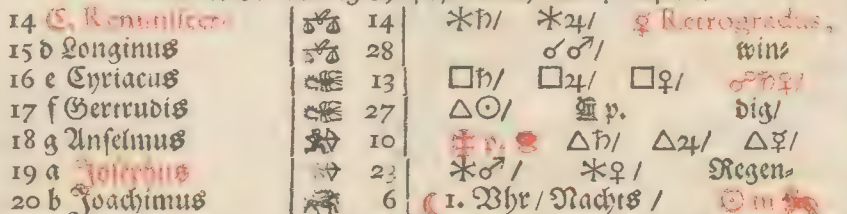 14 C. Reminiscere. 14 ⚹♄/ ⚹♃/ ☿ Retrogradus,
15 d Longinus 28 ☌♂/ win⸗
16 e Cyriacus 13 □♄/ □♃/ □♀/
17 f Gertrudis 27 △☉/ p. dig/
18 g Anselmus 10 △♄/ △♃/ △☿/
19 a Josephus 23 ⚹♂/ ⚹♀/ Regen⸗
20 b Joachimus 6 1. Vhr/ Nachts / ☉ in